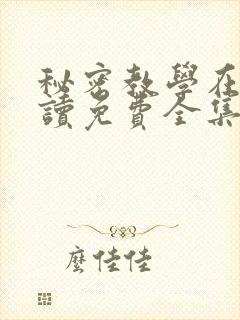 秘密教學在
讀免費全集
麼佳佳